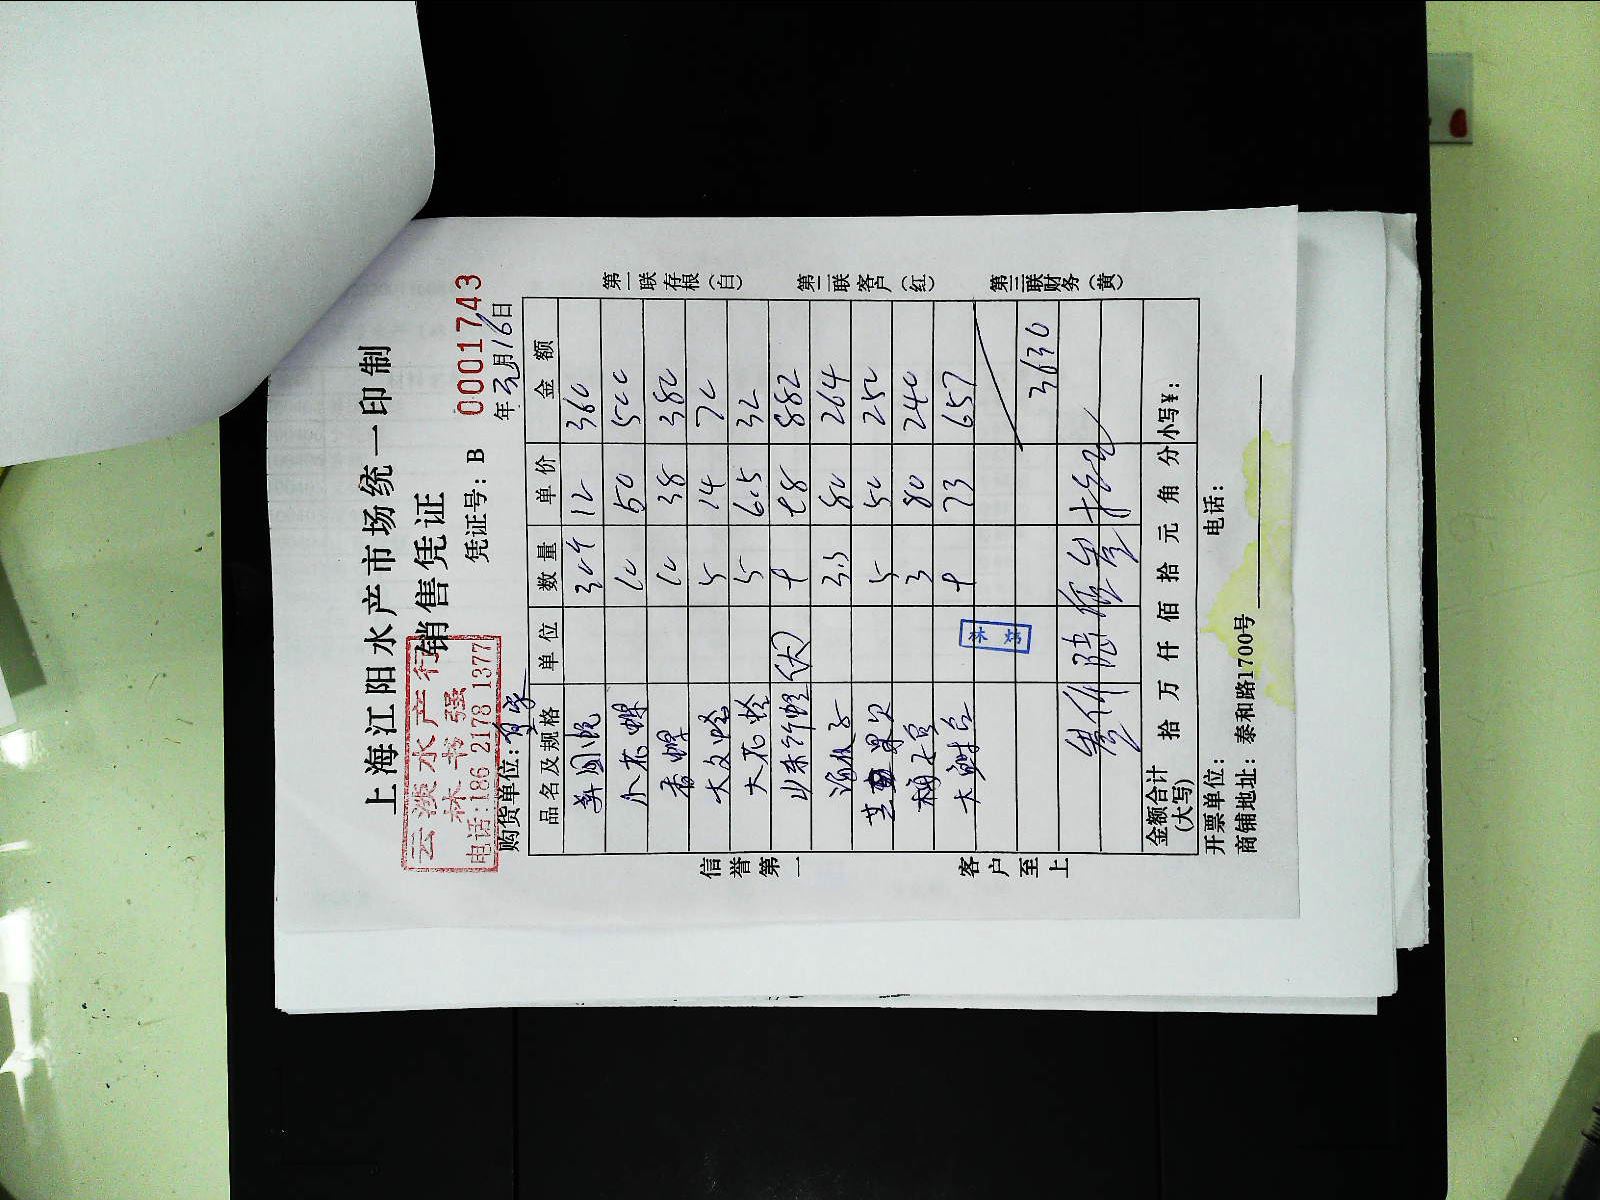 上海江阳水产市场统一印制
销售凭证
云淡水产行
林书强
电话:186 2178 1377
凭证号: B 0001743
购货单位:
年元月16日
品名及规格 单位 数量 单价 金额
12 360
小花螺 10 50 500
香螺 10 38 380
大文蛤 5 14 70
大花蛤 5 6.5 32
9 98 882
3.3 80 264
5 50 250
3 80 240
9 73 657
林 炳
3630
叁仟陆佰叁拾元
金额合计 (大写) 拾 万 仟 佰 拾 元 角 分 小写¥:
开票单位: 电话:
商铺地址: 泰和路1700号
信誉第一 客户至上
第一联存根(白) 第二联客户(红) 第三联财务(黄)